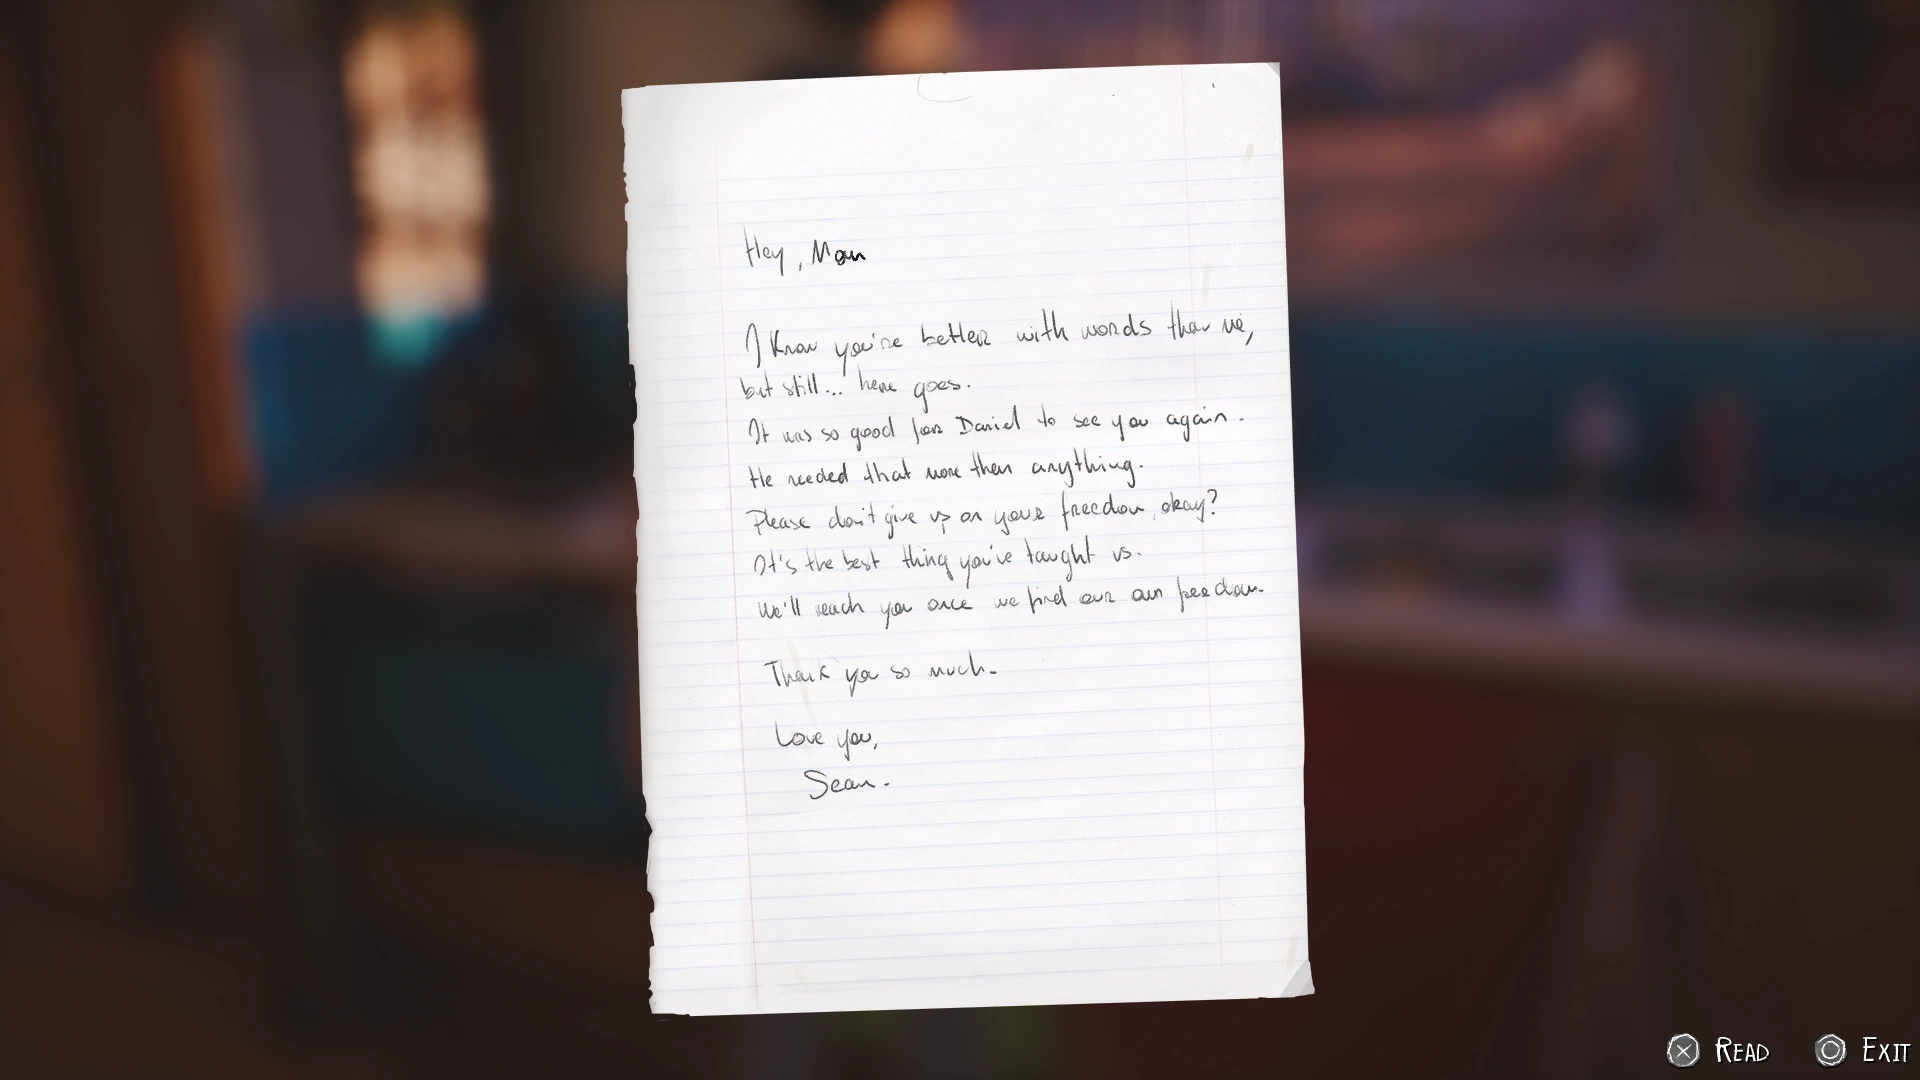 Hey, Mom
I know you're better with words than me,
but still... here goes.
It was so good for Daniel to see you again.
He needed that more then anything.
Please don't give up on your freedom, okay?
It's the best thing you've taught us.
We'll reach you once we find our own freedom.
Thank you so much.
Love you,
Sean.
READ
EXIT